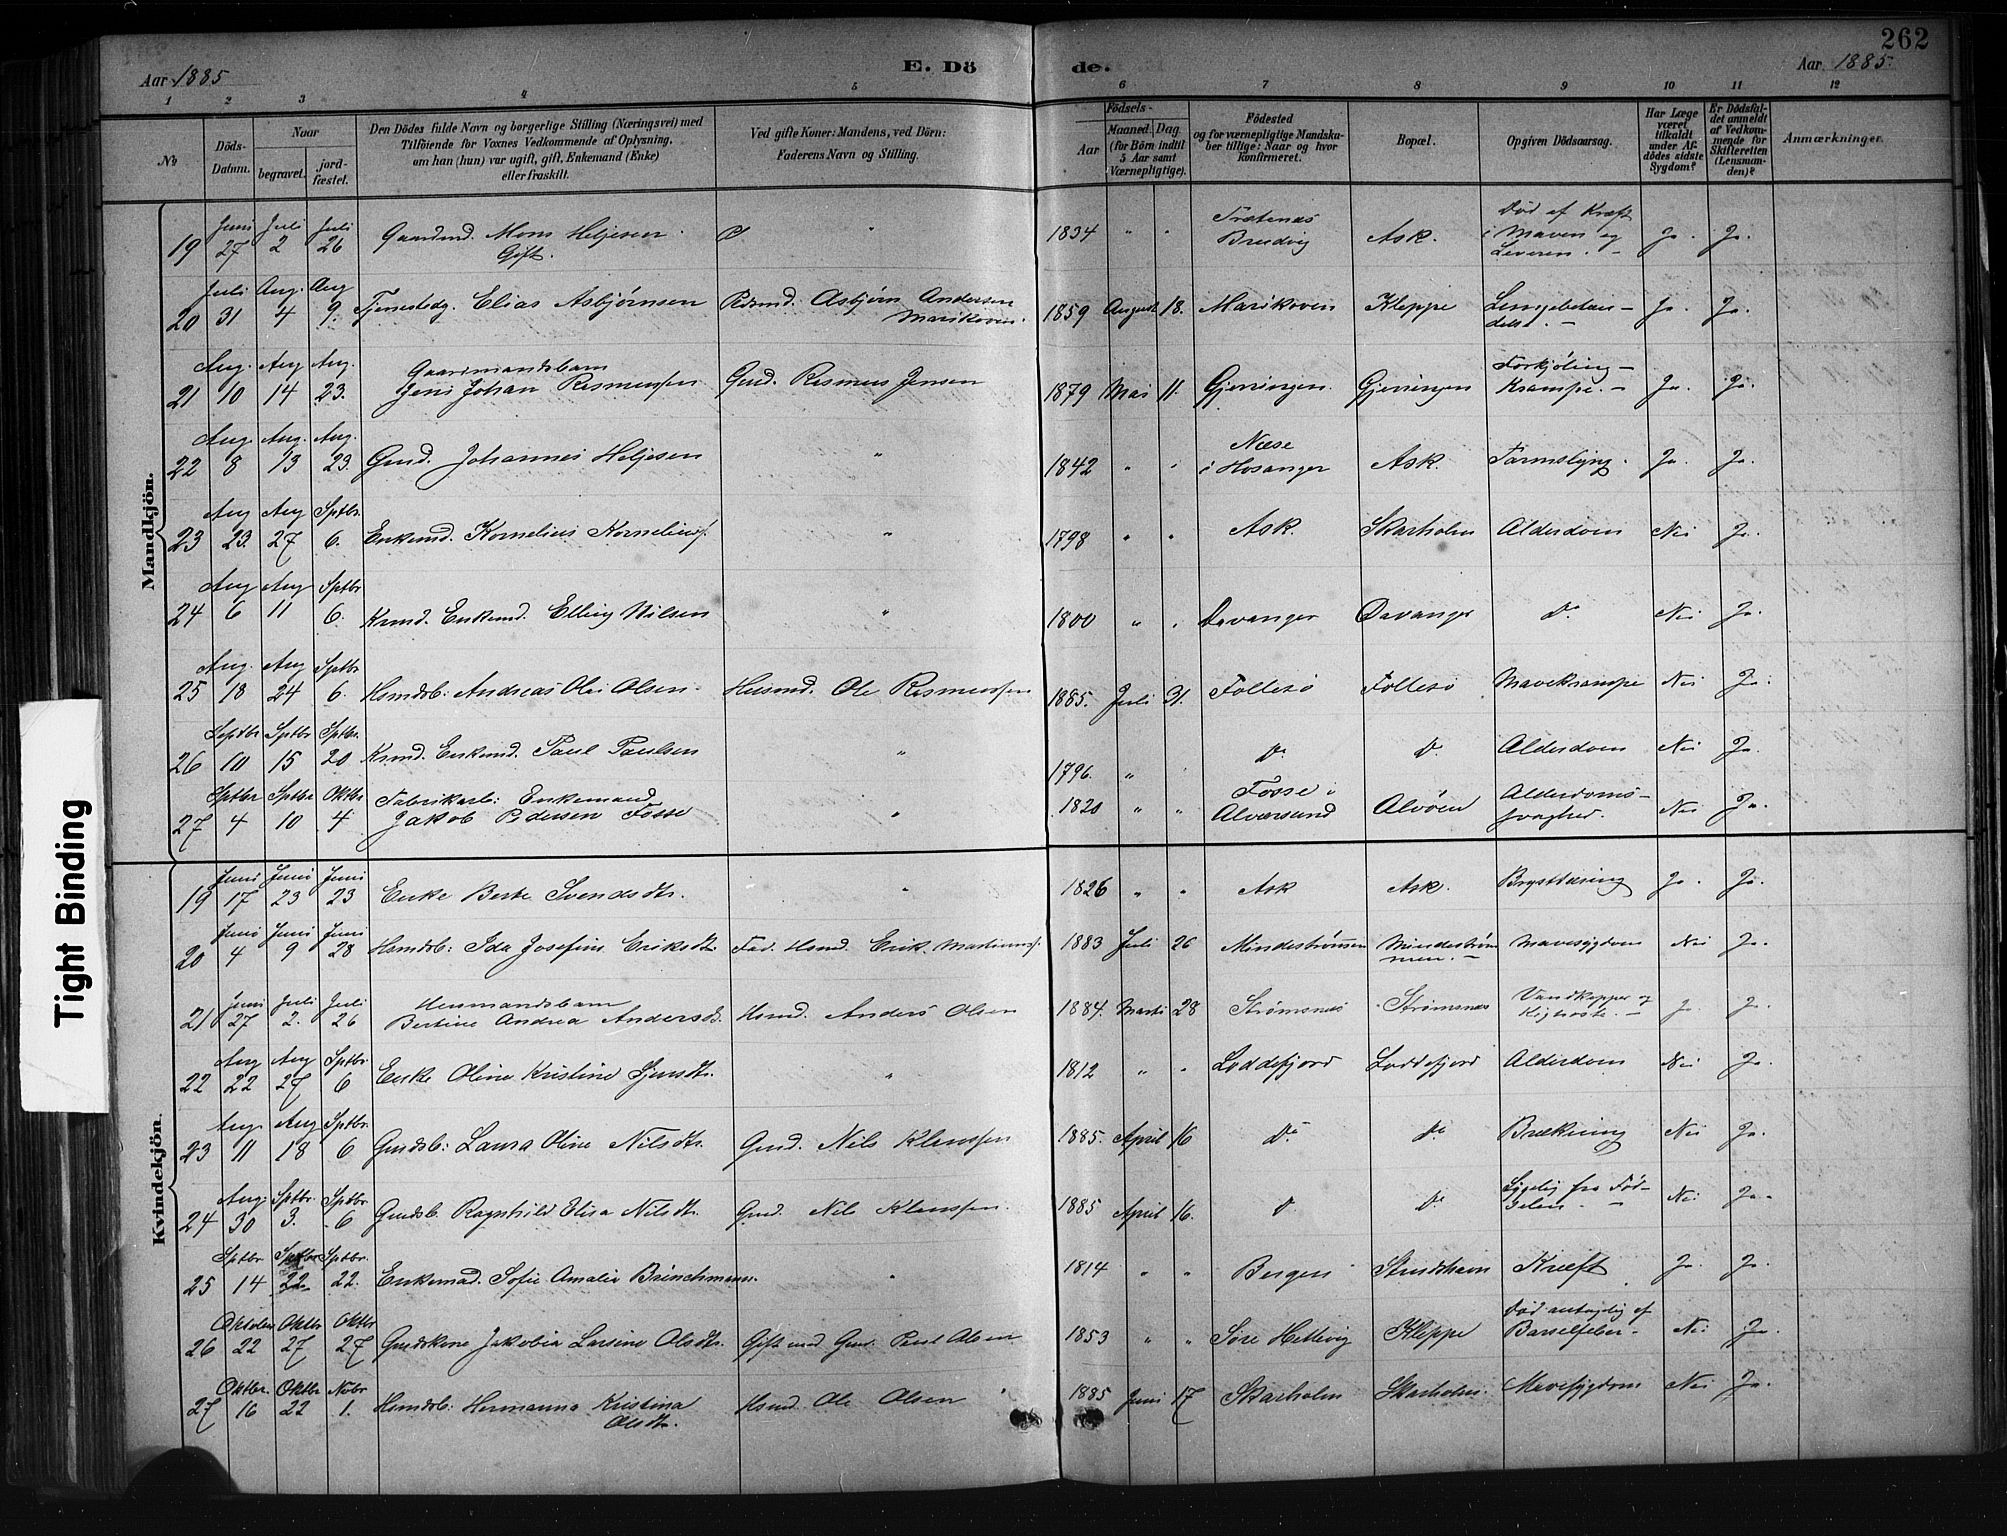 262
Aar 1885
E. Dö
de.
Aar 1885.
1 2 3 4 5 6 7 8 9 10 11 12
No
Döds-Datum.
Naar
begravet.
jordfæstet.
Den Dödes fulde Navn og borgerlige Stilling (Næringsvei) med
Tilföiende for Voxnes Vedkommende af Oplysning,
om han (hun) var ugift, gift, Enkemand (Enke)
eller fraskilt.
Ved gifte Koner: Mandens, ved Börn:
Faderens Navn og Stilling.
Födsels-
Aar
Maaned. Dag.
(for Börn indtil
5 Aar samt
Værnepligtige).
Födested
og for værnepligtige Mandskaber tillige: Naar og hvor
konfirmeret.
Bopæl.
Opgiven Dödsaarsag.
Har Læge
været
tilkaldt
under Afdödes sidste
Sygdom?
Er Dödsfaldet anmeldt
af Vedkommende for
Skifteretten
(Lensmanden)?
Anmærkninger.
Mandkjön.
19 Juni 27 Juli 2 Juli 26 Gaardmd. Mons Heljesen Gift. " 1834 " " Brudvig Ask. Død af Kræft i Maven og Leveren. Ja. Ja.
20 Juli 31 Aug. 4 Aug 9. Tjenestedg. Elias Asbjørnsen Asbjørn Andersen Marikoven. 1859 August 18. Marikoven Kleppe Ja. Ja.
21 Aug. 10 Aug 14 Aug. 23. Gaardmandsbarn Jens Johan Rasmussen Gmd. Rasmus Jensen 1879 Mai 11. Gjerningen Gjerningen Forkjøling - Krampe. - Ja. Ja.
22 Aug. 8 Aug. 13 Aug. 23. Gmd. Johannes Heljesen " 1842 " " Næse i Hosanger Ask. Tarmslyng. Ja. Ja.
23 Aug 23. Aug 27 Sptbr. 6. Enkemd. Kornelius Korneliuss. " 1798 " " Ask. Skarholm Alderdom Nei Ja.
24 Aug 6 Aug 11 Sptbr 6. Kmd. Enkemd. Elling Nilsen " 1800 " " Davanger Davanger Do Nei Ja.
25 Aug. 18 Aug 24 Sptbr 6. Hsmdsb: Andreas Olai Olsen Husmd. Ole Rasmussen 1885. Juli 31. Follesø Follesø Mavekrampe Nei Ja.
26 Septbr 10 Sptbr 15 Sptbr. 20 Kmd. Enkemd. Paul Paulsen " 1796. " " Do Do Alderdom Nei Ja.
27 Sptbr 4 Sptbr 10 Oktbr 4 Fabrikarb: Enkemand Jakob Pedersen Fosse " 1820 " " Fosse i Alværsund Alvøen Alderdomssvaghed. Nei Ja.
Kvindekjön.
19 Juni 17 Juni 23 Juni 23 Enke Berte Svendsdtr. " 1826 " " Ask Ask. Brysttæring Ja. Ja.
20 Juni 4 Juni 9 Juni 28 Hsmdsb: Ida Josefine Eriksdtr. Fad. Hsmd. Erik Martinuss. 1883 Juli 26 Mindestrømmen Mindestrømmen. - Mavesygdom Nei Ja.
21 Juni 27 Juli 2. Juli 26 Husmandsbarn Bertine Andrea Andersdtr. Hsmd. Anders Olsen 1884. Marts 28 Strømsnes Strømsnes Vandkopper og Kighoste. - Ja Ja.
22 Aug 22 Aug 27 Sptbr 6 Enke Oline Kristine Sjursdtr. " 1812 " " Loddefjord Loddefjord Alderdom Nei Ja.
23 Aug. 11 Aug 18 Sptbr. 6 Gmdsb: Laura Oline Nilsdtr. Gmd. Nils Klaussen 1885. April 16 Do Do Brækning Nei Ja.
24 Aug. 30 Sptbr. 3. Sptbr. 6 Gmdsb. Ragnhild Elisa Nilsdtr. Gmd. Nils Klaussen. 1885 April 16. Do Do Sygelig fra Fødselen. - Nei Ja.
25 Sptbr 14 Sptbr 22 Sptbr. 22. Enkemad. Sofie Amalia Brinchmann. " 1814 " " Bergen Strudshavn Kræft Ja. Ja.
26 Oktober 22 Oktbr 27 Oktbr 27 Gmdskone Jakobia Larsine Olsdtr. Gift med Gmd. Paul Olsen 1853 " " Søre Hettevig Kleppe Død antagelig af Barselfeber. Nei Ja.
27 Oktbr. 16 Oktbr 22 Nvbr 1. Hsmdsb: Hermanna Kristina Olsdtr. Hsmd. Ole Olsen 1885 Juni 17 Skarholm Skarholm. Mavesygdom Nei Ja.
Tight Binding